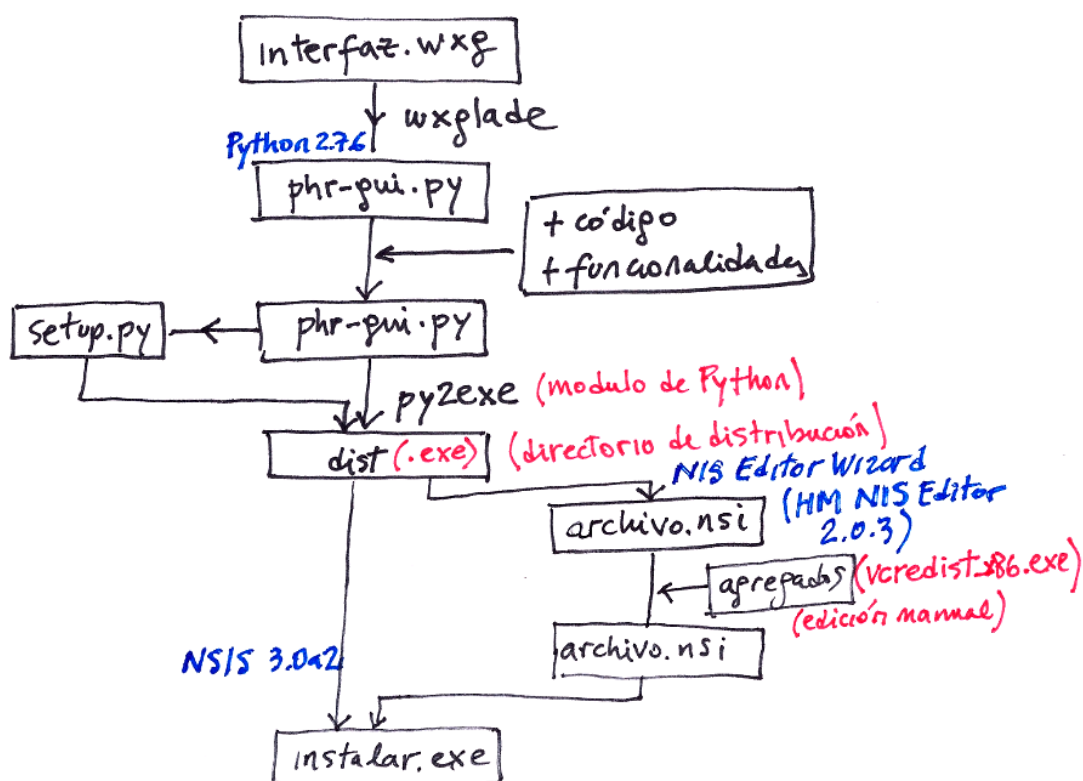 interfaz.wxg
wxglade
Python 2.7.6
phr-gui.py
+ código
+ funcionalidades
setup.py
phr-gui.py
py2exe (modulo de Python)
dist (.exe) (directorio de distribución)
NIS Editor Wizard
(HM NIS Editor
2.0.3)
archivo.nsi
agregados (vcredist_x86.exe)
(edición manual)
archivo.nsi
NSIS 3.0a2
instalar.exe